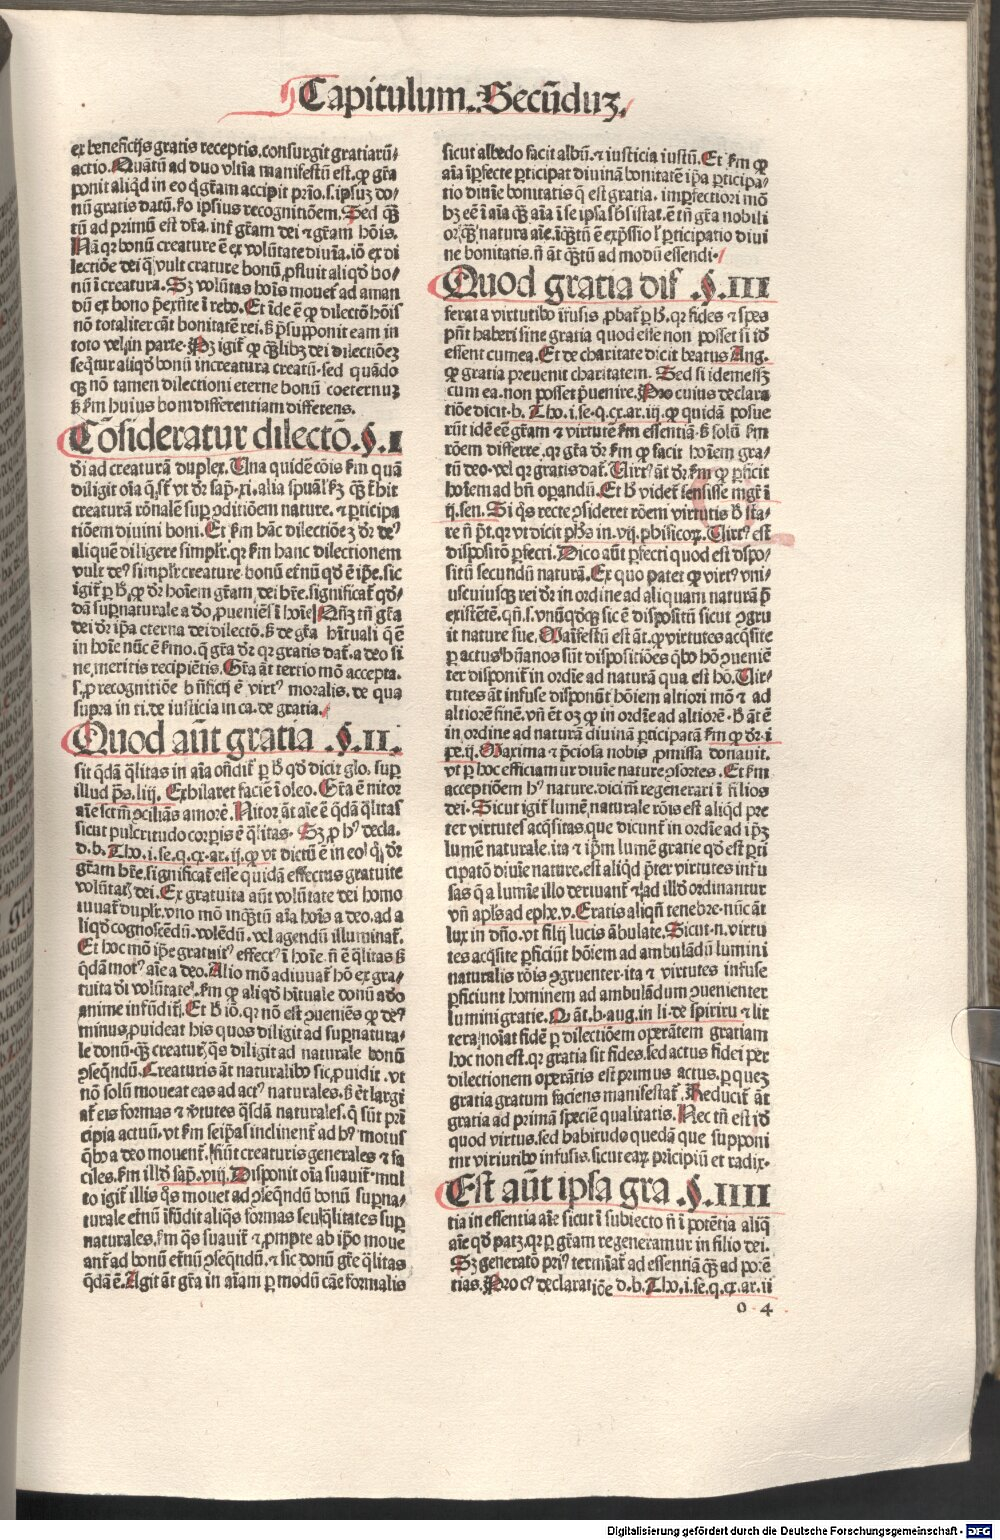 Capitulum. Secūduꝫ.
ex beneficijs gratis receptis. consurgit gratiarū-
actio. Quātū ad duo vltīa manifestū est. ꝙ gr̄a
ponit aliqđ in eo q̄ gr̄am accipit prīo. s. ipsuꝫ do-
nū gratis datū. ẜo ipsius recognitiōem. Sed qꝫ̄
tū ad primū est dr̄a. int̄ gr̄am dei ⁊ gr̄am hōis.
Nā qꝛ bonū creature ē ex volūtate diuīa. iō ex di
lectiōe dei q̄ vult crature bonū ꝓfluit aliqđ bo-
nū ī creatura. Sꝫ volūtas hoīs mouet̄ ad aman
dū ex bono p̄exn̄te ī rebꝰ. Et īde ē ꝙ dilectō hōis
nō totaliter cāt bonitatē rei. ꝫ p̄supponit eam in
toto vel in parte. Pꝫ igit̄ ꝙ qꝫ̄libꝫ dei dilectiōeꝫ
seq̄tur aliqđ bonū increatura creatū. sed quādo
qꝫ nō tamen dilectioni eterne bonū coeternuꝫ
ꝫ ẜm huius boni differentiam differens.
Cōsideratur dilectō. §. I
di ad creaturā duplex. Una quidē cōis ẜm quā
diligit oīa q̄ ſt̄ vt dr̄ sap̄. xi. alia spūal ẜꝫ qꝫ t̄hit
creaturā rōnalē supꝛ ꝯditiōem nature. ⁊ ꝑticipa
tiōem diuini boni. Et ẜm hāc dilectiōeꝫ dr̄ deꝰ
aliquē diligere simplr̄. qꝛ ẜm hanc dilectionem
vult deꝰ simplr̄ creature bonū et̄nū qđ ē ip̄e. sic
igit̄ ꝑ ħ ꝙ dr̄ hoīem gr̄am dei hr̄e. significat̄ qđ-
dā suꝑnaturale a dō ꝓueniēs ī hoīe. Qn̄ꝫ tn̄ gr̄a
dei dr̄ ip̄a eterna dei dilectō. ꝫ de gr̄a hītuali q̄ ē
in hoīe nūc ē ẜmo. q̄ gr̄a dr̄ qꝛ gratis dat̄. a deo si
ne meritis recipiētis. Gr̄a āt tertio mō accepta.
s. ꝓ recognitiōe bn̄ficij ē virtꝰ moralis. de qua
supra in ti. de iusticia in ca. de gratia.
Quod aūt gratia. §. II.
sit q̄dā q̄litas in aīa on̄dit̄ ꝑ ħ qđ dicit glo. suꝑ
illud ps̄. liij. Exhilaret faciē ī oleo. Gr̄a ē nitor
aīe scm̄ ꝯciliās amorē. Nitor āt aīe ē q̄dā q̄litas
sicut pulcritudo corꝑis ē q̄litas. Sꝫ ꝓ hꝰ decla.
d. b. Tho. i. se. q. cx. ar. ij. ꝙ vt dictū ē in eo q̄ dr̄
gr̄am hr̄e. significat̄ esse quidā effectus gratuite
volūtaꝫ dei. Ex gratuita aūt volūtate dei homo
iuuat̄ duplr̄. vno mō inqꝫ̄tū aīa hoīs a deo. ad a
liqđ cognoscēdū. volēdū. vel agendū illuminat̄.
Et hoc mō ip̄e gratuitꝰ effectꝰ ī hoīe. n̄ ē q̄litas ꝫ
q̄dā motꝰ aīe a deo. Alio mō adiuuat̄ hō ex gra-
tuita di volūtate. ẜm ꝙ aliqđ hītuale donū a dō
anime infūdit̄. Et ħ iō. qꝛ nō est ꝯueniēs ꝙ deꝰ
minus ꝓuideat his quos diligit ad supnatura-
le donū. qꝫ̄ creatur̄. q̄s diligit ad naturale bonū
ꝯseqn̄dū. Creaturis āt naturalibꝰ sic ꝓuidit. vt
nō solū moueat eas ad actꝰ naturales. ꝫ ēt largi
at̄ eis formas ⁊ v̄tutes q̄sdā naturales. q̄ sūt pri
cipia actuū. vt ẜm seip̄as inclinent̄ ad hꝰ motus
q̄bꝰ a deo mouent̄. ẜiūt creaturis generales ⁊ fa
ciles. ẜm illđ sap̄. viij. Disponit oīa suauit̄. mul
to igit̄ illis q̄s mouet ad ꝯseqn̄dū bonū suꝑna-
turale et̄nū īfūdit aliq̄s formas seu q̄litates suꝑ
naturales. ẜm q̄s suauit̄ ⁊ ꝓmpte ab ip̄o moue
ant̄ ad bonū et̄nū ꝯseqn̄dū. ⁊ sic donū gr̄e q̄litas
q̄dā ē. Agit āt gr̄a in aīam ꝑ modū cāe formalis
sicut albedo facit albū. ⁊ iusticia iustū. Et ẜm ꝙ
aīa īꝑfecte ꝑticipat diuinā bonitatē ip̄a ꝑticipa-
tio diuīe bonitatis q̄ est gratia. imperfectiori mō
hꝫ eē ī aīa qꝫ̄ aīa ī se ip̄a sb̄sistat. ē tn̄ gr̄a nobili
or qꝫ̄ natura aīe. iqꝫ̄tū ē exp̄ssio ł ꝑticipatio diui
ne bonitatis. n̄ āt qꝫ̄tū ad modū essendi.
Quod gratia dif. §. III
ferat a virtutibꝰ īfusis ꝓbat̄ ꝑ ħ. qꝛ fides ⁊ spes
pn̄t haberi sine gratia quod esse non posset si iđ
essent cum ea. Et de charitate dicit beatus Aug.
ꝙ gratia preuenit charitatem. Sed si idem esꝫ
cum ea. non posset p̄uenire. Pro cuius declara
tiōe dicit. b. Tho. i. se. q. cx. ar. iij. ꝙ quidā posue
rūt idē eē gr̄am ⁊ virtutē ẜm essentiā. ꝫ solū ẜm
rōem differre. qꝛ gr̄a dr̄ ẜm ꝙ facit hoīem gra-
tū deo. vel qꝛ gratis dat̄. Uirtꝰ āt dr̄ ẜm ꝙ ꝑficit
hoīem ad bn̄ opandū. Et ħ videt̄ sensisse mgr̄ ī
ij. sen. Si q̄s recte ꝯsideret rōem virtutis ħ sta-
re n̄ p̄t. qꝛ vt dicit phꝰs in. vij. phisicoꝝ. Uirtꝰ est
dispositō ꝑfecti. Dico aūt ꝑfecti quod est dispo-
sitū secundū naturā. Ex quo patet ꝙ virtꝰ vni-
uscuiusqꝫ rei dr̄ in ordine ad aliquam naturā p̄
existētē. qn̄. s. vnūqđqꝫ sic ē dispositū sicut ꝯgru
it nature sue. Maīfestū est āt. ꝙ virtutes acq̄site
ꝑ actus hūanos sūt dispositiōes q̄bꝰ hō ꝯueniē
ter disponit̄ in ordīe ad naturā qua est hō. Uir-
tutes āt infuse disponūt hōiem altiori mō ⁊ ad
altiorē finē. vn̄ ēt oꝫ ꝙ in ordīe ad altiorē. ħ āt ē
in ordine ad naturā diuinā ꝑticipatā ẜm ꝙ dr̄. i
pe. ij. Maxima ⁊ p̄ciosa nobis ꝓmissa donauit.
vt ꝑ hoc efficiamur diuīe nature ꝯsortes. Et ẜm
acceptiōem hꝰ nature. dicim̄ regenerari ī filios
dei. Sicut igit̄ lumē naturale rōis est aliqđ pre
ter virtutes acq̄sitas. que dicunt̄ in ordīe ad ip̄ꝫ
lumē naturale. ita ⁊ ip̄m lumē gratie qđ est ꝑti
cipatō diuīe nature. est aliqđ p̄ter virtutes infu
sas q̄ a lumīe illo deriuant̄ ⁊ ad illđ ordinantur
vn̄ apl̄s ad ephe. v. Eratis aliqn̄ tenebre. nūc āt
lux in dn̄o. vt filij lucis ābulate. Sicut. n. virtu
tes acq̄site ꝑficiūt hōiem ad ambulādū lumini
naturalis rōis ꝯgruenter. ita ⁊ virtutes infuse
ꝑficiunt hominem ad ambulādum ꝯuenienter
lumini gratie. Q āt. b. aug. in li. de spiritu ⁊ lit
tera noīat fidē ꝑ dilectiōem operātem gratiam
hoc non est. qꝛ gratia sit fides. sed actus fidei per
dilectionem operātis est primus actus. ꝑ queꝫ
gratia gratum faciens manifestat̄. Reducit̄ āt
gratia ad primā speciē qualitatis. Nec tn̄ est iđ
quod virtus. sed habitudo quedā que supponi
tur virtutibꝰ infusis. sicut eaꝝ prīcipiū et radix.
Est aūt ipsa gra. §. IIII
tia in essentia aīe sicut ī subiecto n̄ ī potētia aliq̄
aīe qđ patꝫ. qꝛ ꝑ gr̄am regeneramur in filio dei.
Sꝫ generatō priꝰ termīat̄ ad essentiā qꝫ̄ ad potē
tias. Pro cꝰ declaratiōe d. b. Tho. i. se. q. cx. ar. ii
o 4
Digitalisierung gefördert durch die Deutsche Forschungsgemeinschaft - DFG